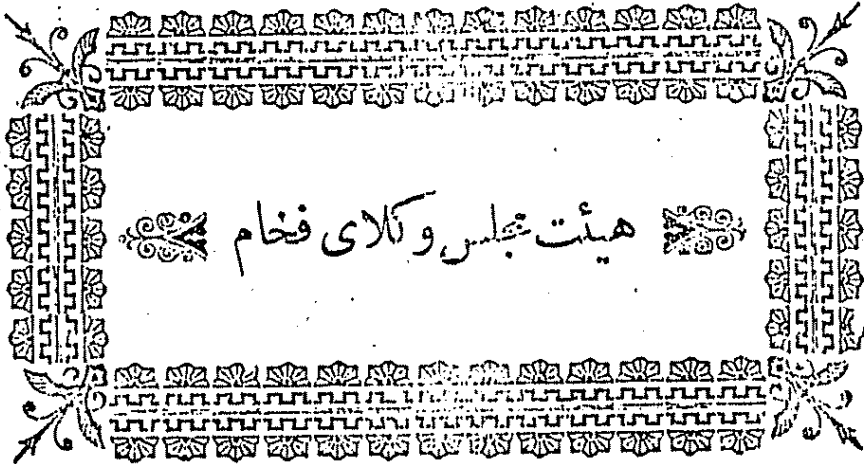 هيئت مجلس وكلای فخام